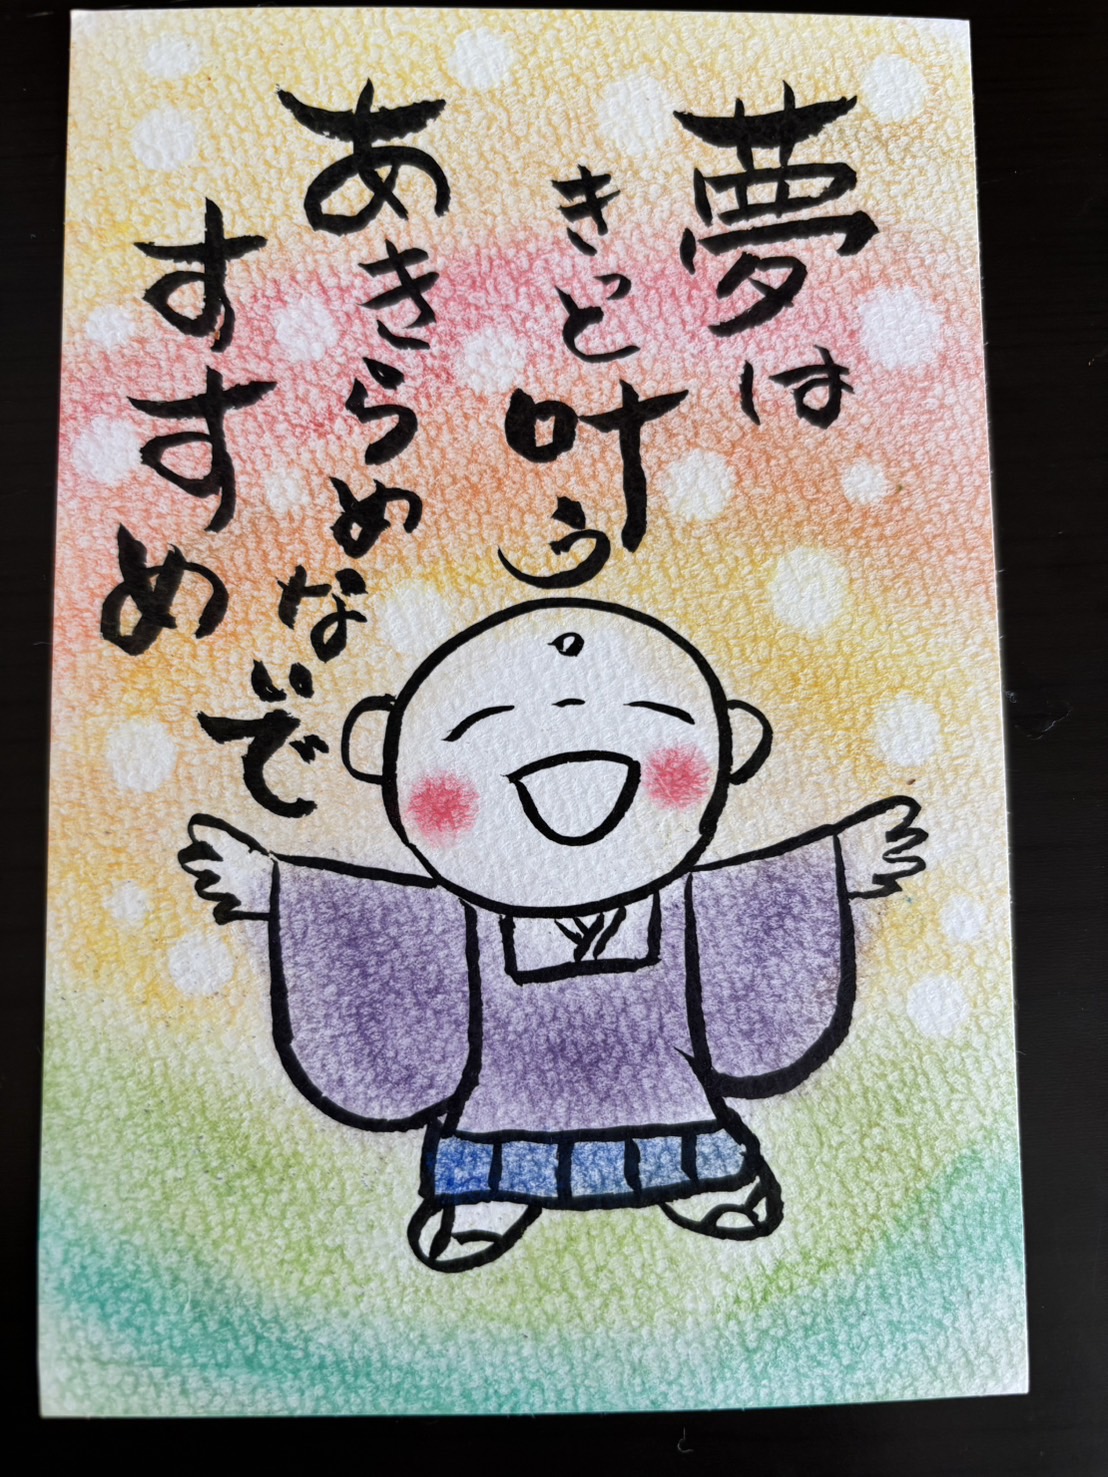 夢は
きっと叶う
あきらめないで
すすめ